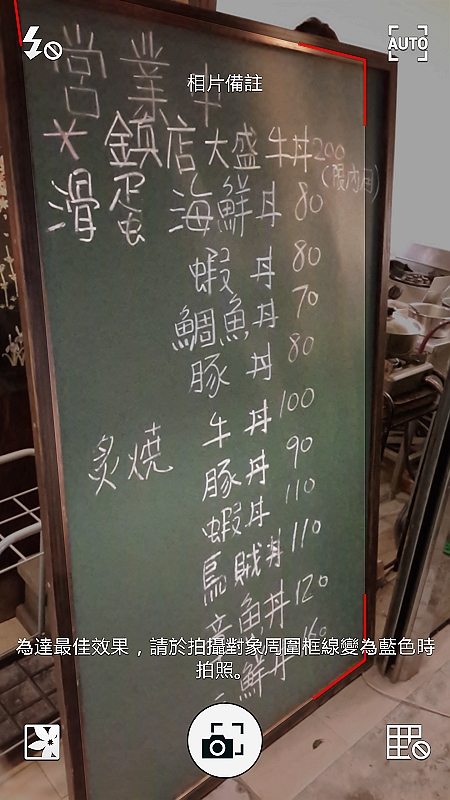 AUTO
相片備註
營業中
* 鎮店大盛牛丼200
(限內用)
滑蛋 海鮮丼 80
蝦丼 80
鯛魚丼 70
豚丼 80
炙燒 牛丼 100
豚丼 90
蝦丼 110
烏賊丼 110
魚丼 120
為達最佳效果，請於拍攝對象周圍框線變為藍色時
拍照。
鮮丼